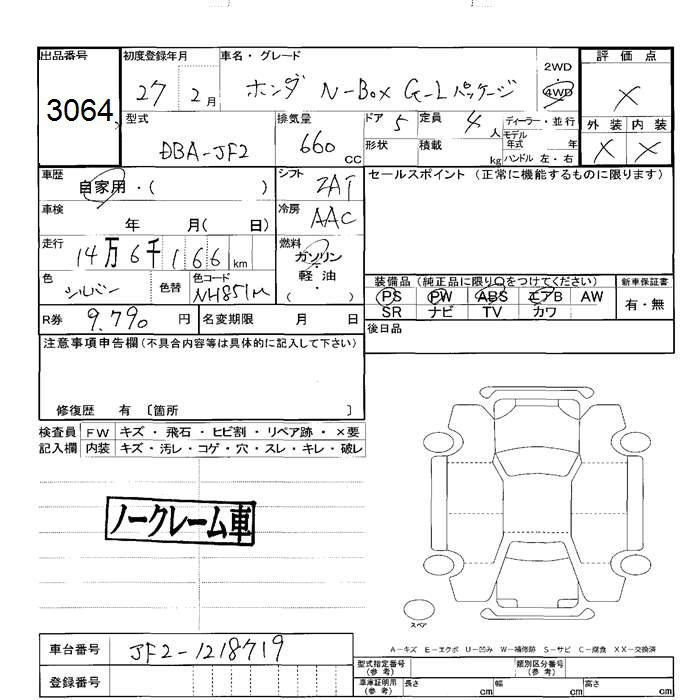 出品番号 初度登録年月 車名・グレード 2WD 評価点
3064 27 2月 ホンダ N-Box G-Lパッケージ 4WD X
型式 排気量 ドア 5 定員 4人 ディーラー・並行 外装 内装
DBA-JF2 660 CC 形状 積載 kg モデル年式 年 ハンドル 左・右 X X
車歴 自家用・( ) シフト 2AT セールスポイント (正常に機能するものに限ります)
車検 年 月( 日) 冷房 AAC
走行 14万6千166km 燃料 ガソリン 軽・油 ( )
色 シルバー 色替 色コード NH851M
装備品 (純正品に限り○をつけてください) 新車保証書
PS PW ABS エアB AW 有・無
SR ナビ TV カワ
R券 9,790円 名変期限 月 日 後日品
注意事項申告欄(不具合内容等は具体的に記入して下さい)
修復歴 有 〔箇所 〕
検査員 FW キズ・飛石・ヒビ割・リペア跡・×要
記入欄 内装 キズ・汚レ・コゲ・穴・スレ・キレ・破レ
ノークレーム車
スペア
車台番号 JF2-1218719
A-キズ E-エクボ U-凹み W-補修跡 S-サビ C-腐食 XX-交換済
登録番号 型式指定番号(参考) 類別区分番号(参考)
車庫証明用(参考) 長さ cm 幅 cm 高さ cm